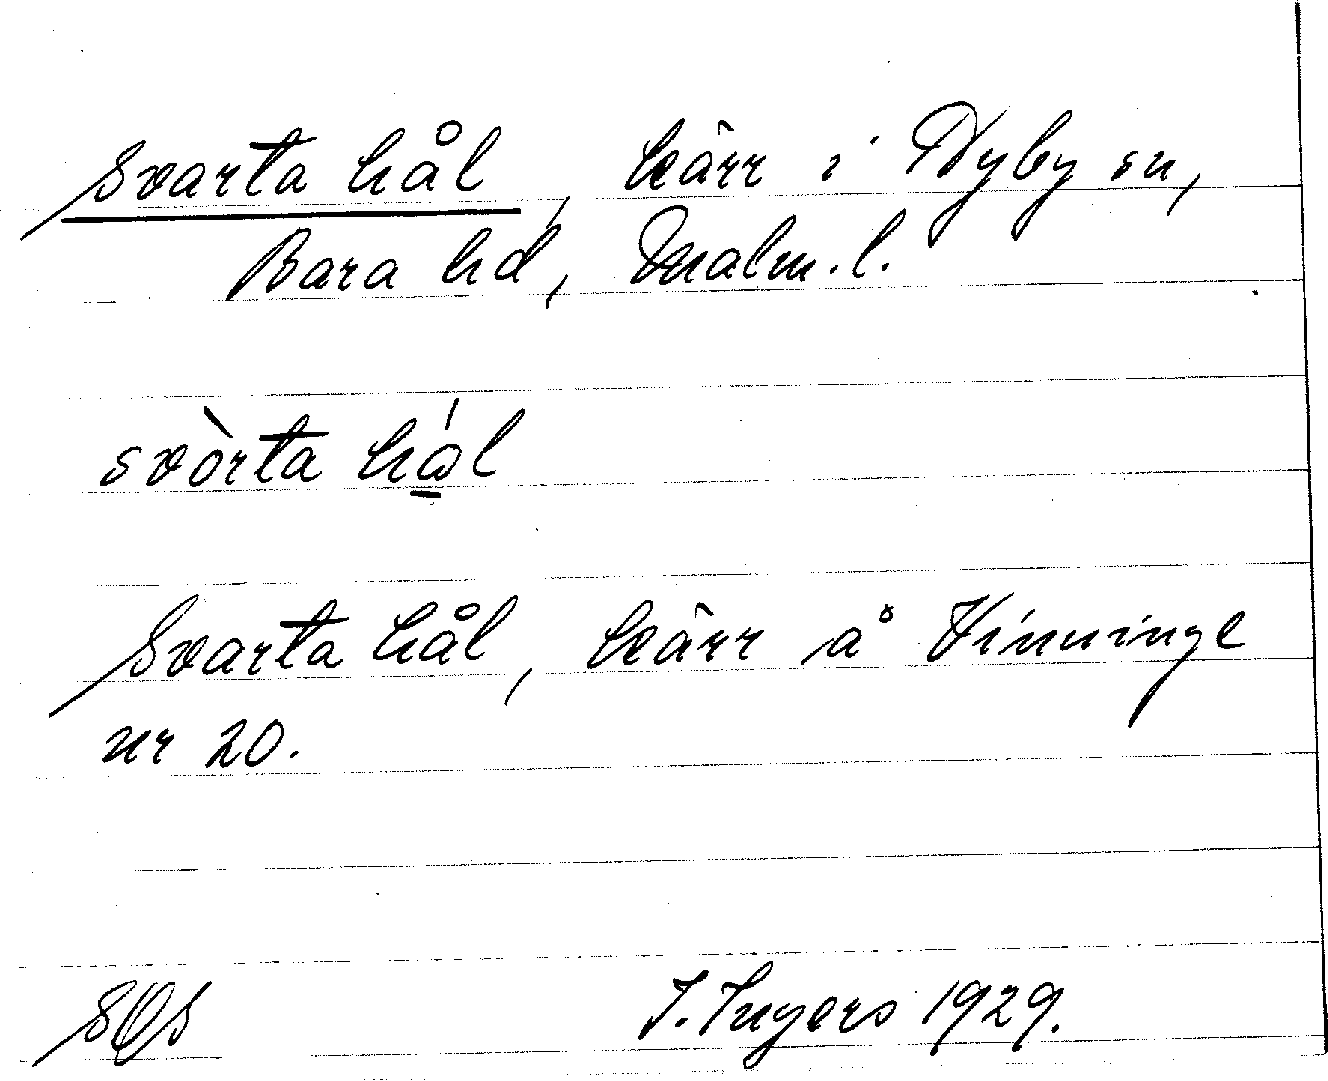 Svarta hål, kärr i Hyby sn,
Bara hd, Malm. l.
svòrta hál
Svarta hål, kärr å Vinninge
nr 20.
SOS I. Ingers 1929.